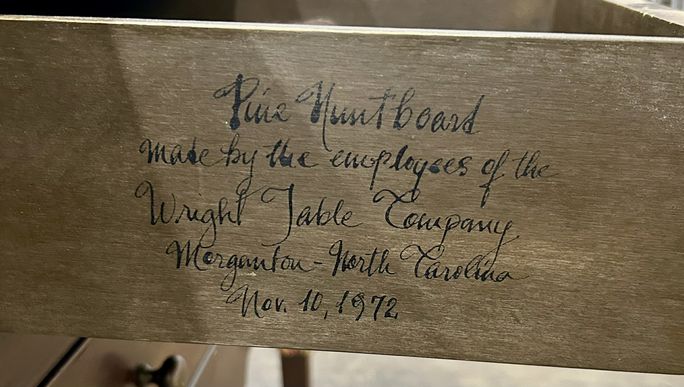 Pine Huntboard
made by the employees of the
Wright Table Company
Morganton - North Carolina
Nov. 10, 1972